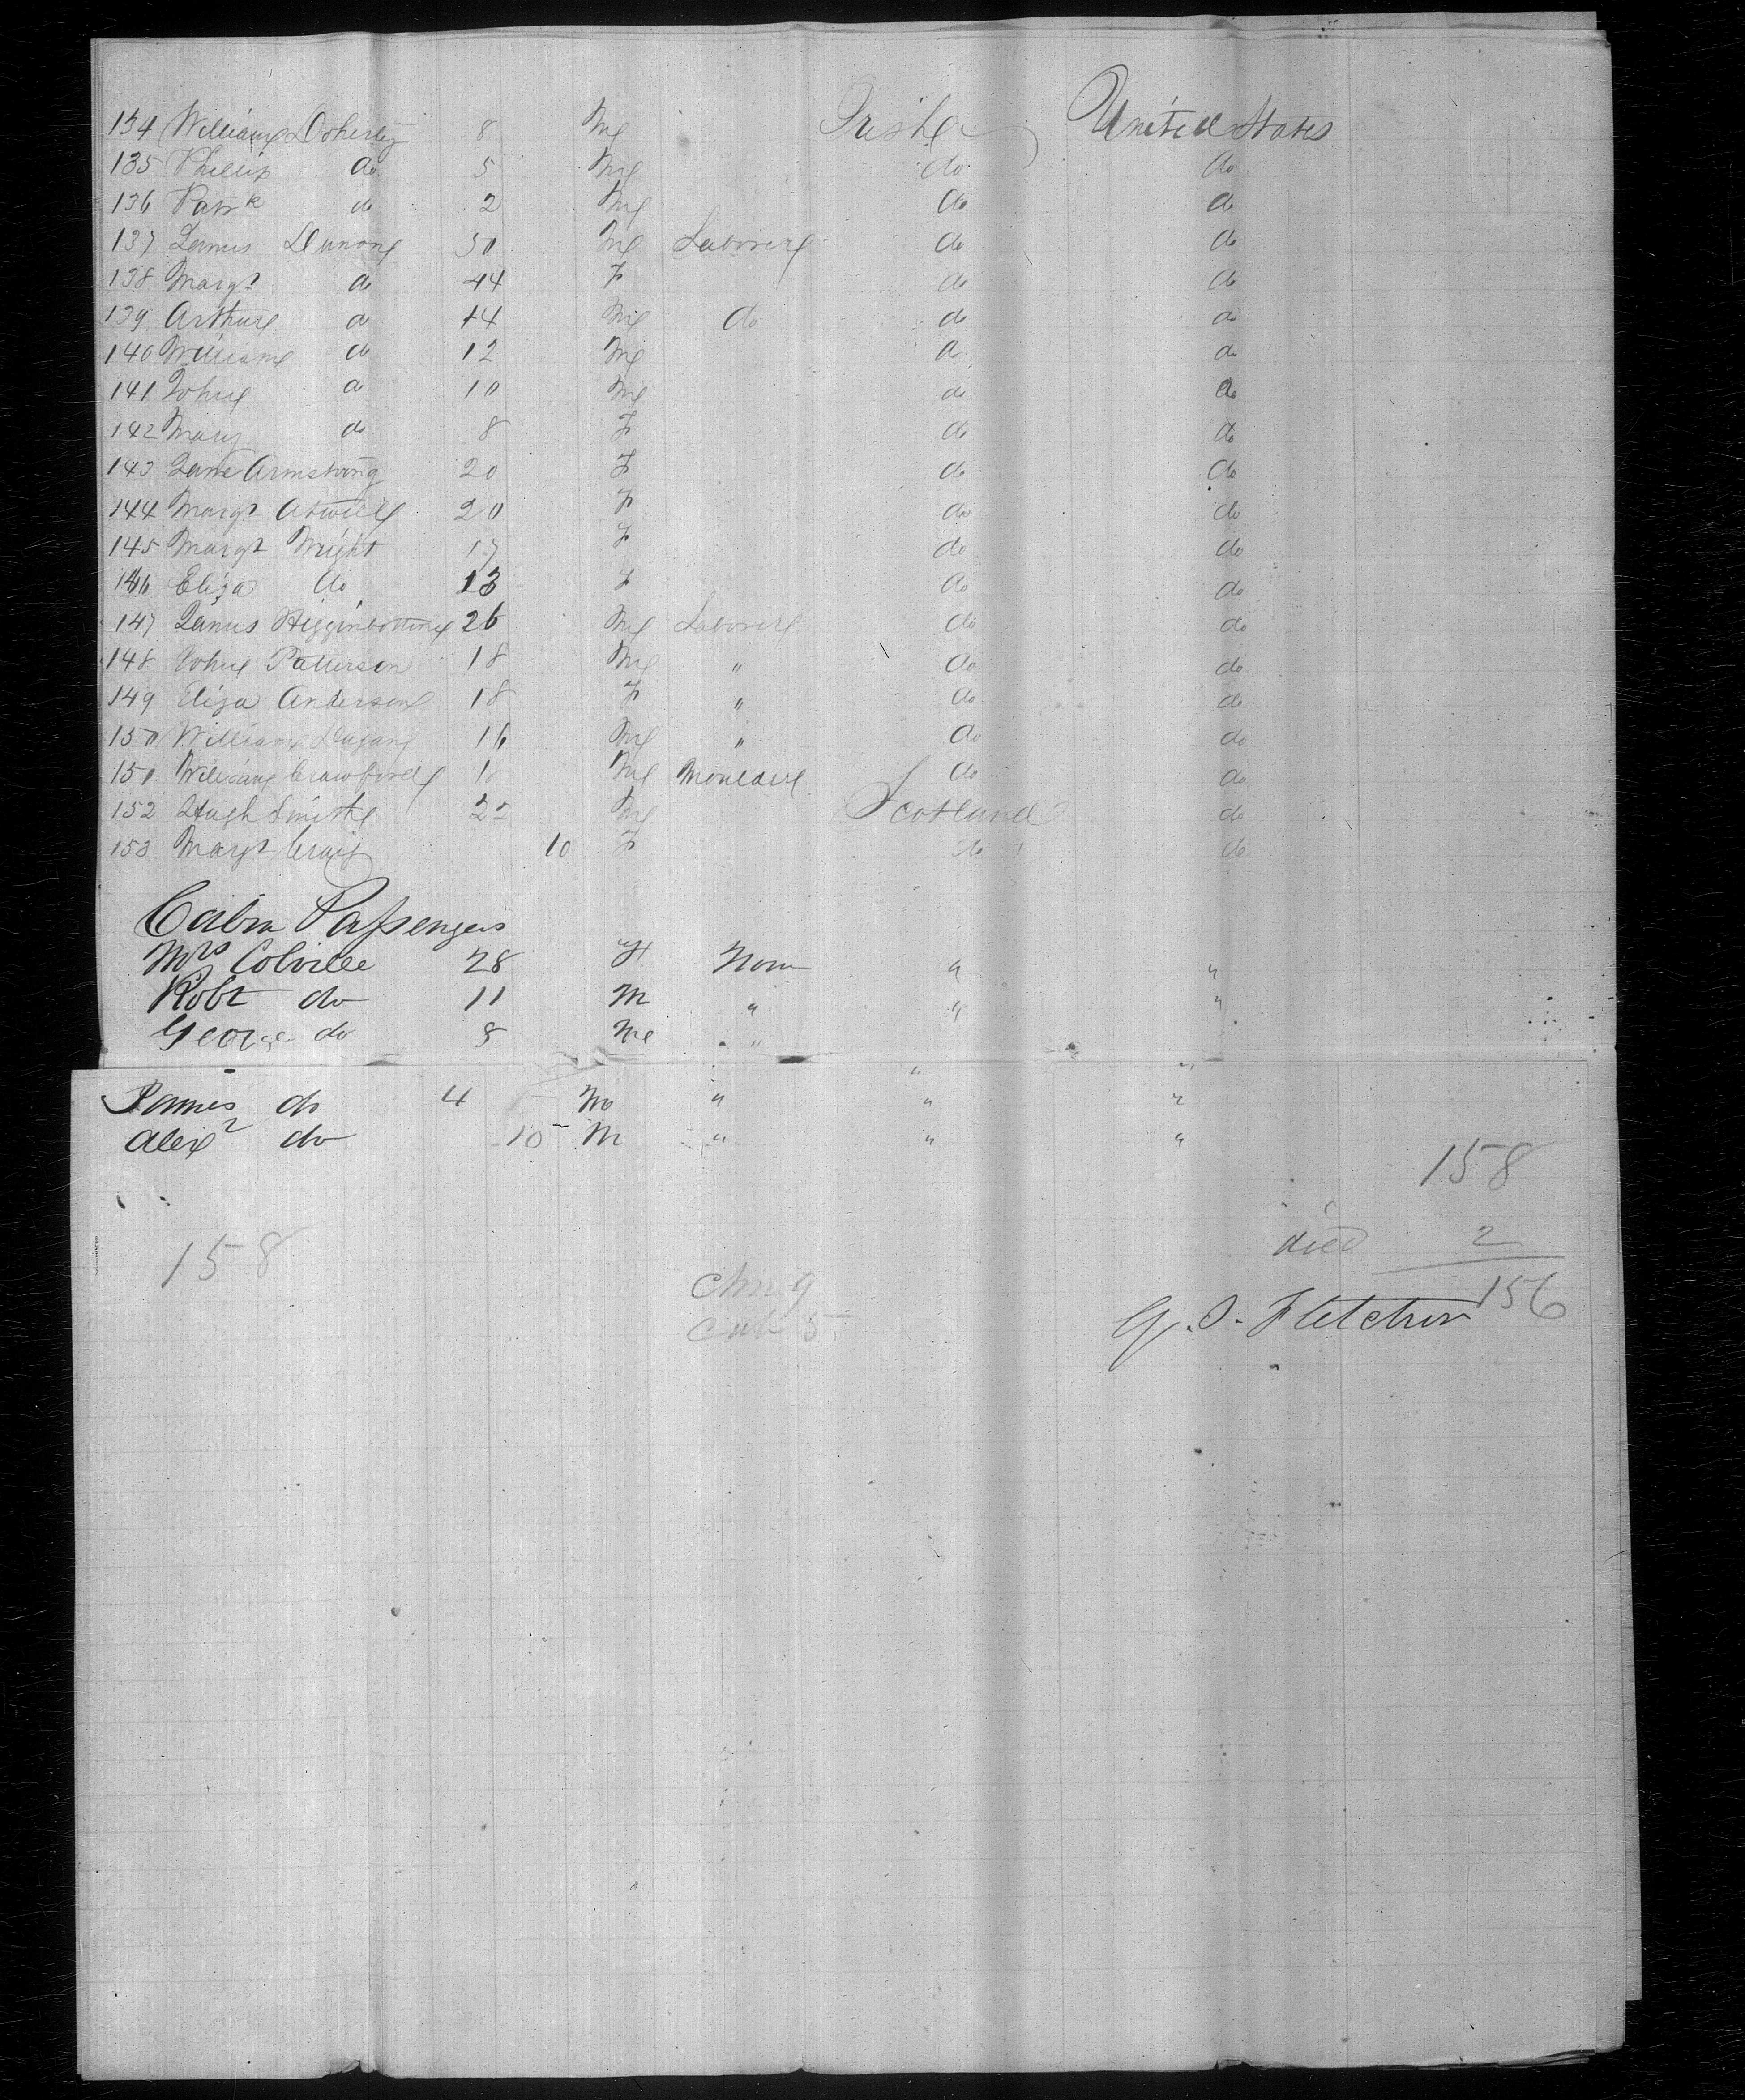 134 William Doherty 8 M Irish United States
135 Phillip do 5 M do do
136 Patrk do 2 M do do
137 James 50 M Laborer do do
138 Margt do 44 F do do
139 Arthur do 14 M do do do
140 William do 12 M do do
141 John do 10 M do do
142 Mary do 8 F do do
143 Jane Armstrong 20 F do do
144 Margt Atwell 20 F do do
145 Margt Wright 17 F do do
146 Eliza do 13 F do do
147 James Higginbottom 26 M Laborer do do
148 John Patterson 18 M " do do
149 Eliza Anderson 18 F " do do
150 William Dugan 16 M " do do
151 William Crawford M do do
152 Hugh Smith 22 M Scotland do
153 Margt Craig 10 F do do
Cabin Passengers
Mrs Colville 28 F None " "
Robt do 11 M " " "
George do 8 M " " "
James do 4 M " " "
Alexr do 10 M " " "
158
died 2
158
156
Cab 5
G. S. Fletcher